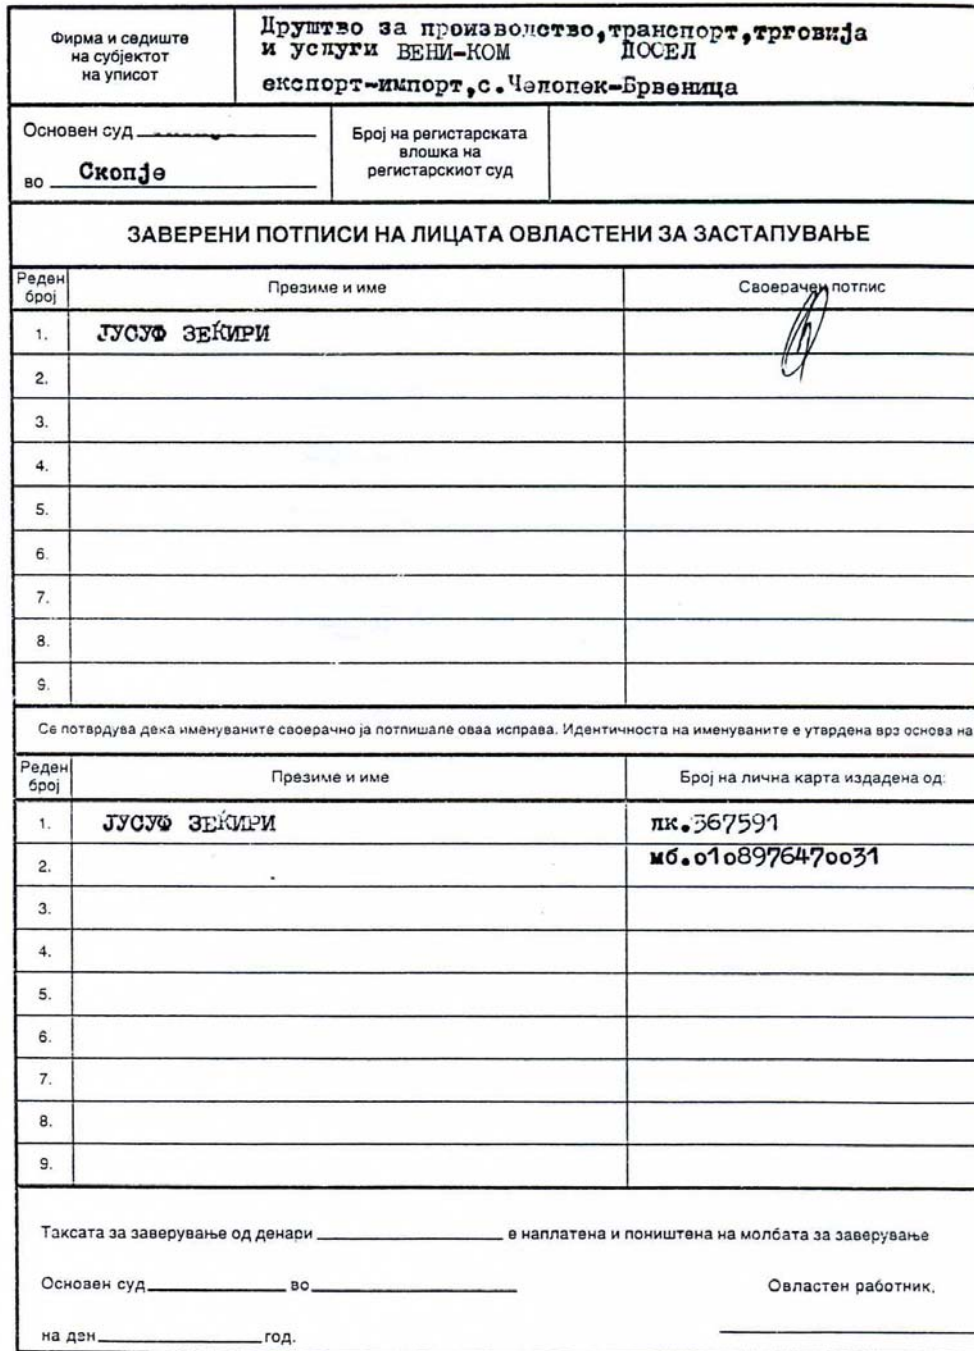 Фирма и седиште
на субјектот
на уписот
Друштво за производство,транспорт,трговија
и услуги ВЕНИ-КОМ ДООЕЛ
експорт-импорт,с.Челопек-Брвеница
Основен суд
во Скопје
Број на регистарската
влошка на
регистарскиот суд
ЗАВЕРЕНИ ПОТПИСИ НА ЛИЦАТА ОВЛАСТЕНИ ЗА ЗАСТАПУВАЊЕ
Реден
број
Презиме и име
Своерачен потпис
1. ЈУСУФ ЗЕЌИРИ
2.
3.
4.
5.
6.
7.
8.
9.
Се потврдува дека именуваните своерачно ја потпишале оваа исправа. Идентичноста на именуваните е утврдена врз основа на
Реден
број
Презиме и име
Број на лична карта издадена од:
1. ЈУСУФ ЗЕЌИРИ лк.367591
2. мб.0108976470031
3.
4.
5.
6.
7.
8.
9.
Таксата за заверување од денари е наплатена и поништена на молбата за заверување
Основен суд во Овластен работник,
на ден год.